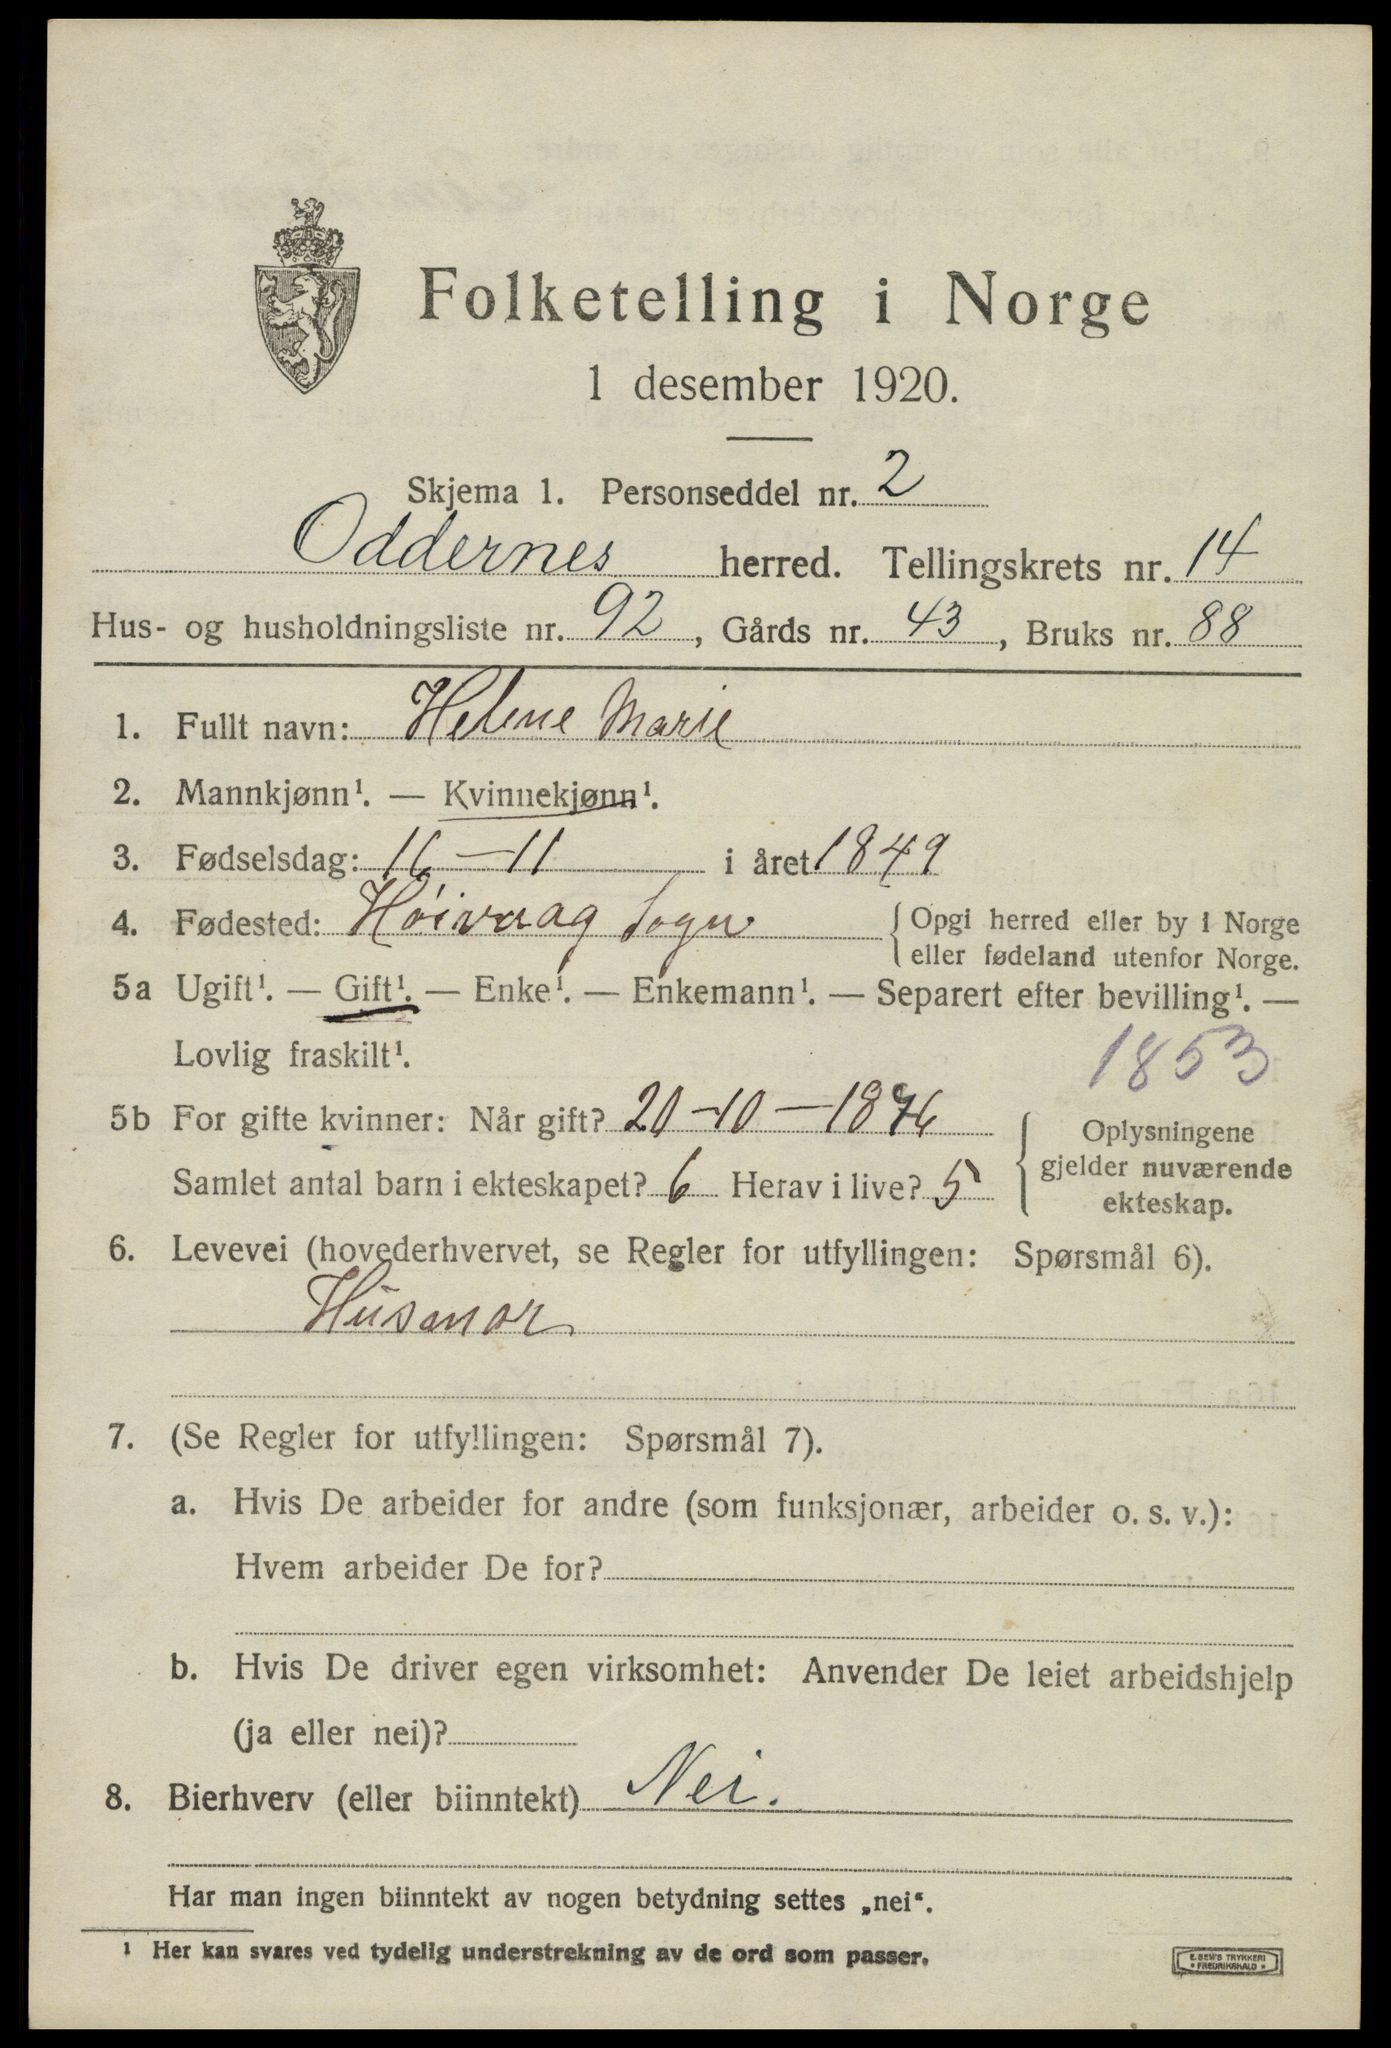 Folketelling i Norge
1 desember 1920.
Skjema 1. Personseddel nr. 2
Oddernes herred. Tellingskrets nr. 14
Hus- og husholdningsliste nr. 92, Gårds nr. 43, Bruks nr. 88
1. Fullt navn: Helene Marie
2. Mannkjønn¹. — Kvinnekjønn¹.
3. Fødselsdag: 11 — 11 i året 1849
4. Fødested: Høivaag Sogn { Opgi herred eller by i Norge
eller fødeland utenfor Norge.
5a Ugift¹. — Gift¹. — Enke¹. — Enkemann¹. — Separert efter bevilling¹. —
Lovlig fraskilt¹.
1853
5b For gifte kvinner: Når gift? 20-10-1876
Samlet antal barn i ekteskapet? 6 Herav i live? 5
{ Oplysningene
gjelder nuværende
ekteskap.
6. Levevei (hovederhvervet, se Regler for utfyllingen: Spørsmål 6).
Husmor
7. (Se Regler for utfyllingen: Spørsmål 7).
a. Hvis De arbeider for andre (som funksjonær, arbeider o. s. v.):
Hvem arbeider De for?
b. Hvis De driver egen virksomhet: Anvender De leiet arbeidshjelp
(ja eller nei)?
8. Bierhverv (eller biinntekt) Nei.
Har man ingen biinntekt av nogen betydning settes „nei“.
¹ Her kan svares ved tydelig understrekning av de ord som passer.
E. SEM'S TRYKKERI
* FREDRIKSHALD *